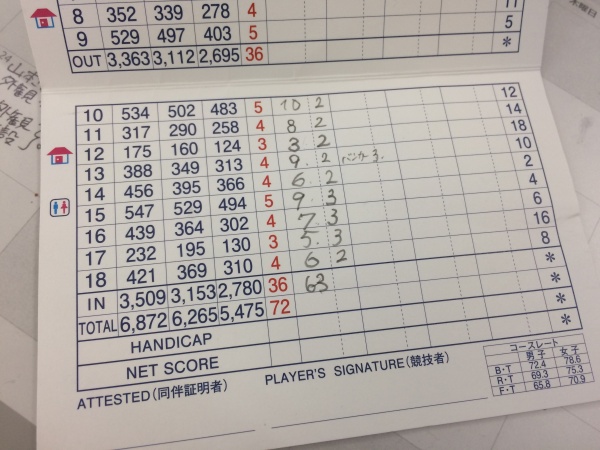 8 352 339 278 4 11
9 529 497 403 5 5
OUT 3,363 3,112 2,695 36 *
10 534 502 483 5 10 2 12
11 317 290 258 4 8 2 14
12 175 160 124 3 3 2 18
13 388 349 313 4 9. 2 バンカー3. 10
14 456 395 366 4 6. 2 2
15 547 529 494 5 9. 3 4
16 439 364 302 4 7. 3 6
17 232 195 130 3 5. 3 16
18 421 369 310 4 6 2 8
IN 3,509 3,153 2,780 36 63 *
TOTAL 6,872 6,265 5,475 72 *
HANDICAP *
NET SCORE *
ATTESTED(同伴証明者) PLAYER'S SIGNATURE(競技者)
コースレート
男子 女子
B・T 72.4 78.6
R・T 69.3 75.3
F・T 65.8 70.9